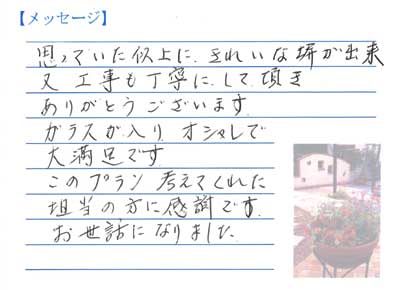 【メッセージ】
思っていた以上に、きれいな塀が出来
又 工事も丁寧に、して頂き
ありがとうございます。
ガラスが入り オシャレで
大満足です
このプラン 考えてくれた
担当の方に感謝です。
お世話になりました。